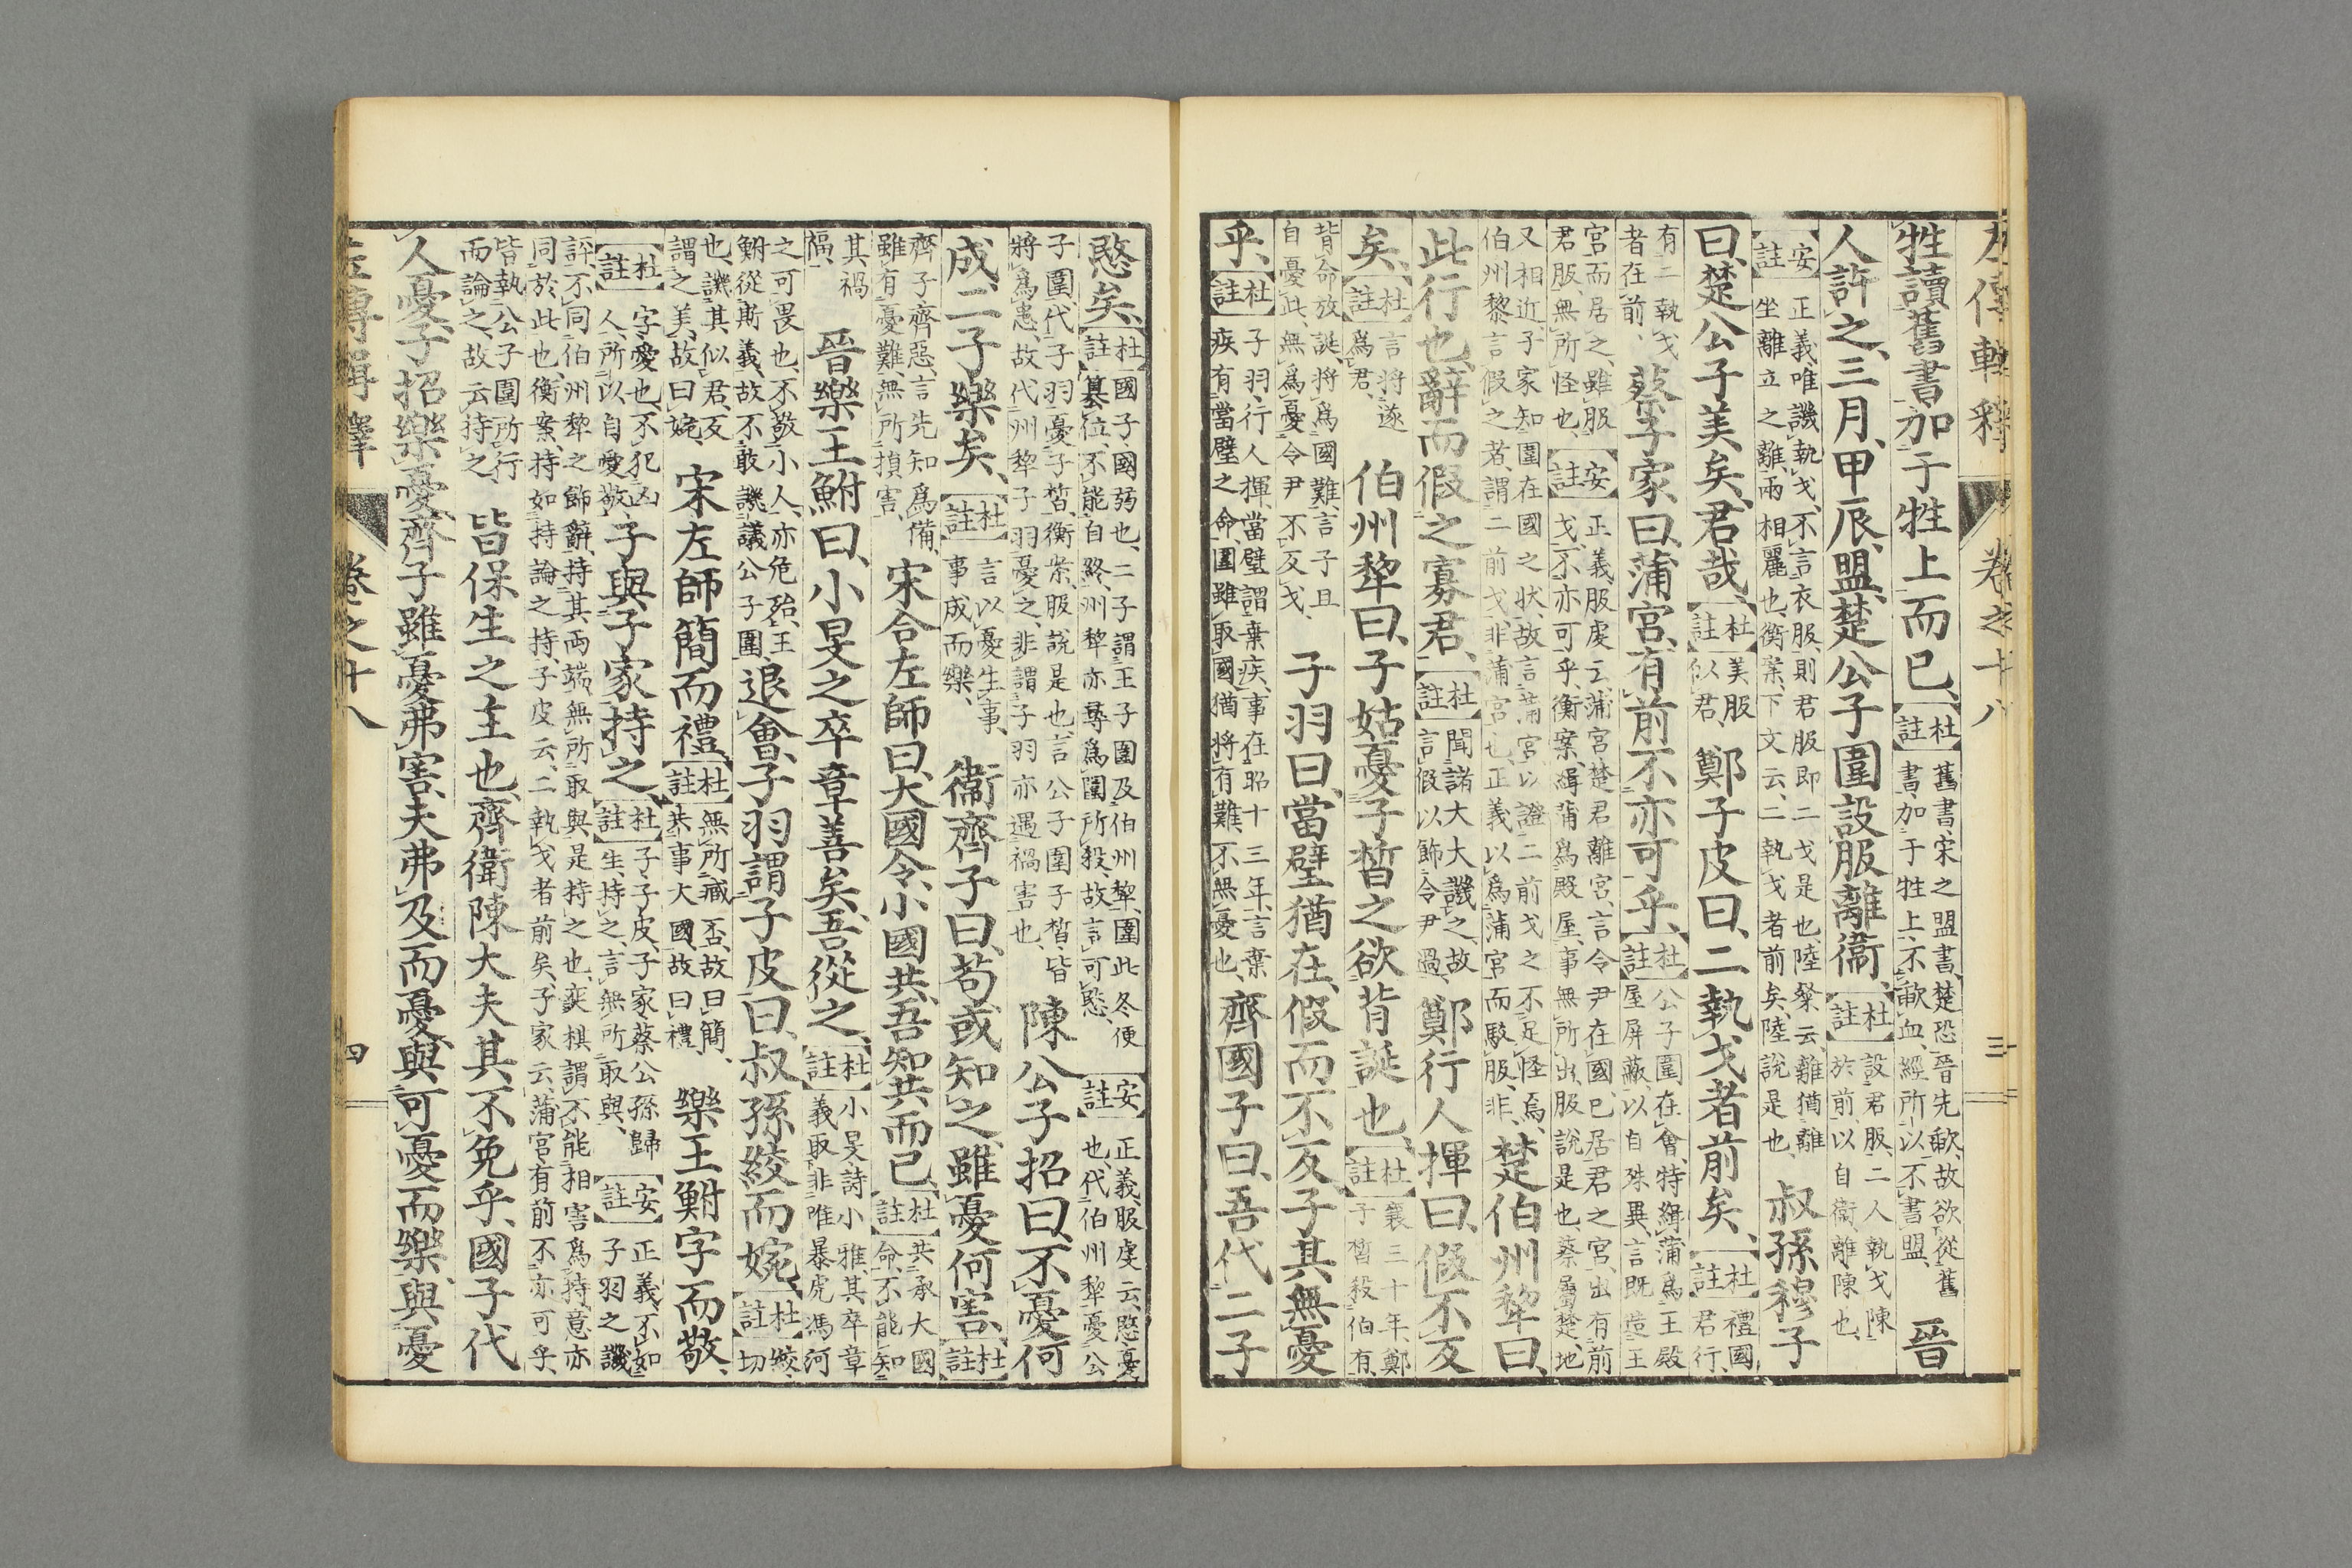 左傳輯釋 卷之十八 三
牲讀舊書加于牲上而已、【杜註】舊書、宋之盟書、楚恐晉先歃、故欲從舊書、加于牲上、不歃血、經所以不書盟、晉
人許之、三月、甲辰、盟、楚公子圍設服離衞、【杜註】設君服、二人執戈陳於前、以自衞、離陳也、
【安註】正義、唯譏執戈、不言衣服、則君服即二戈是也、陸粲云、離猶離坐離立之離、兩相麗也、衡案、下文云、二執戈者前矣、陸說是也、叔孫穆子
曰、楚公子美矣、君哉、【杜註】美服似君、鄭子皮曰、二執戈者前矣、【杜註】禮國君行、
有二執戈者在前、蔡子家曰、蒲宮有前、不亦可乎、【杜註】公子圍在會、特緝蒲爲王殿屋屏蔽、以自殊異、言既造王
宮而居之、雖服君服、無所怪也、【安註】正義、服虔云、蒲宮楚君離宮、言令尹在國已居君之宮、出有前戈、不亦可乎、衡案、緝蒲爲殿屋、事無所出、服說是也、蔡屬楚、地
又相近、子家知圍在國之狀、故言蒲宮、以證二前戈之不足怪焉、伯州黎言假之者、謂二前戈、非蒲宮也、正義以爲蒲宮而駁服、非、楚伯州犂曰、
此行也、辭而假之寡君、【杜註】聞諸大夫譏之、故言假以飾令尹過、鄭行人揮曰、假不反
矣、【杜註】言將遂爲君、伯州犂曰、子姑憂子皙之欲背誕也、【杜註】襄三十年、鄭子皙殺伯有、
背命放誕、將爲國難、言子且自憂此、無爲憂令尹不反戈、子羽曰、當璧猶在、假而不反、子其無憂
乎、【杜註】子羽、行人揮、當璧謂棄疾、事在昭十三年、言棄疾有當璧之命、圍雖取國、猶將有難、不無憂也、齊國子曰、吾代二子
愍矣、【杜註】國子國弱也、二子謂王子圍及伯州犂、圍此冬便簒位、不能自終、州犂亦尋爲圍所殺、故言可愍、【安註】正義、服虔云、愍憂也、代伯州犂憂公
子圍、代子羽憂子皙、衡案、服說是也、言公子圍子皙、皆將爲患、故代州犂子羽憂之、非謂子羽亦遇禍害也、陳公子招曰、不憂何
成、二子樂矣、【杜註】言以憂生事、事成而樂、衞齊子曰、苟或知之、雖憂何害、【杜註】
齊子齊惡、言先知爲備、雖有憂難、無所損害、宋合左師曰、大國令、小國共、吾知共而已、【杜註】共承大國命、不能知
其禍福、晉樂王鮒曰、小旻之卒章善矣、吾從之、【杜註】小旻、詩小雅、其卒章義取非唯暴虎馮河
之可畏也、不敬小人、亦危殆、王鮒從斯義、故不敢譏議公子圍、退會、子羽謂子皮曰、叔孫絞而婉、【杜註】絞、切
也、譏其似君、反謂之美、故曰婉、宋左師簡而禮、【杜註】無所臧否、故曰簡、共事大國、故曰禮、樂王鮒字而敬、
【杜註】字、愛也、不犯凶人、所以自愛敬、子與子家持之、【杜註】子子皮、子家蔡公孫歸生、持之、言無所取與、【安註】正義、不如子羽之譏
評、不同伯州犂之飾辭、持其兩端、無所取與、是持之也、奕棋謂不能相害爲持、意亦同於此也、衡案、持如持論之持、子皮云、二執戈者前矣、子家云、蒲宮有前、不亦可乎、
皆執公子圍所行而論之、故云持之、皆保生之主也、齊衞陳大夫其不免乎、國子代
人憂、子招樂憂、齊子雖憂弗害、夫弗及而憂、與可憂而樂、與憂
左傳輯釋 卷之十八 四